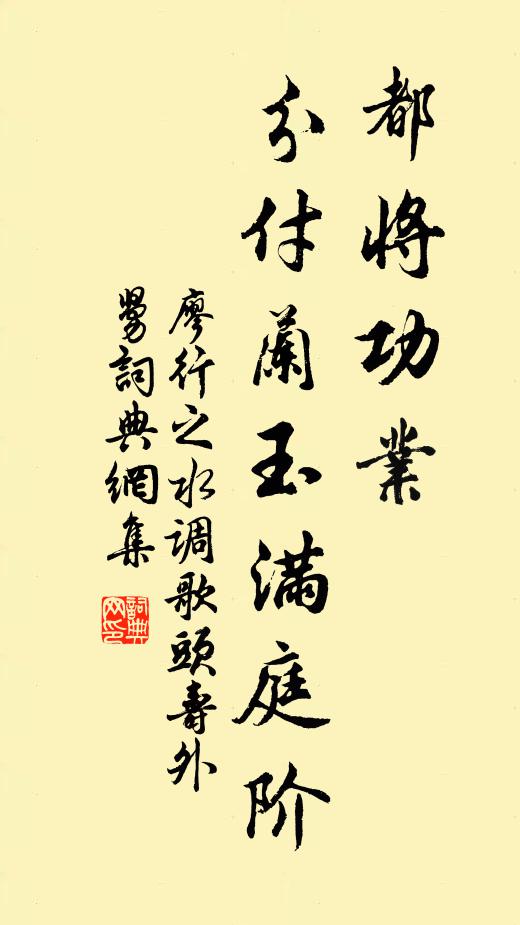 都将功業
分付蘭玉满庭阶
廖行之水调歌頭壽外
舅詞典網集
詞典网印